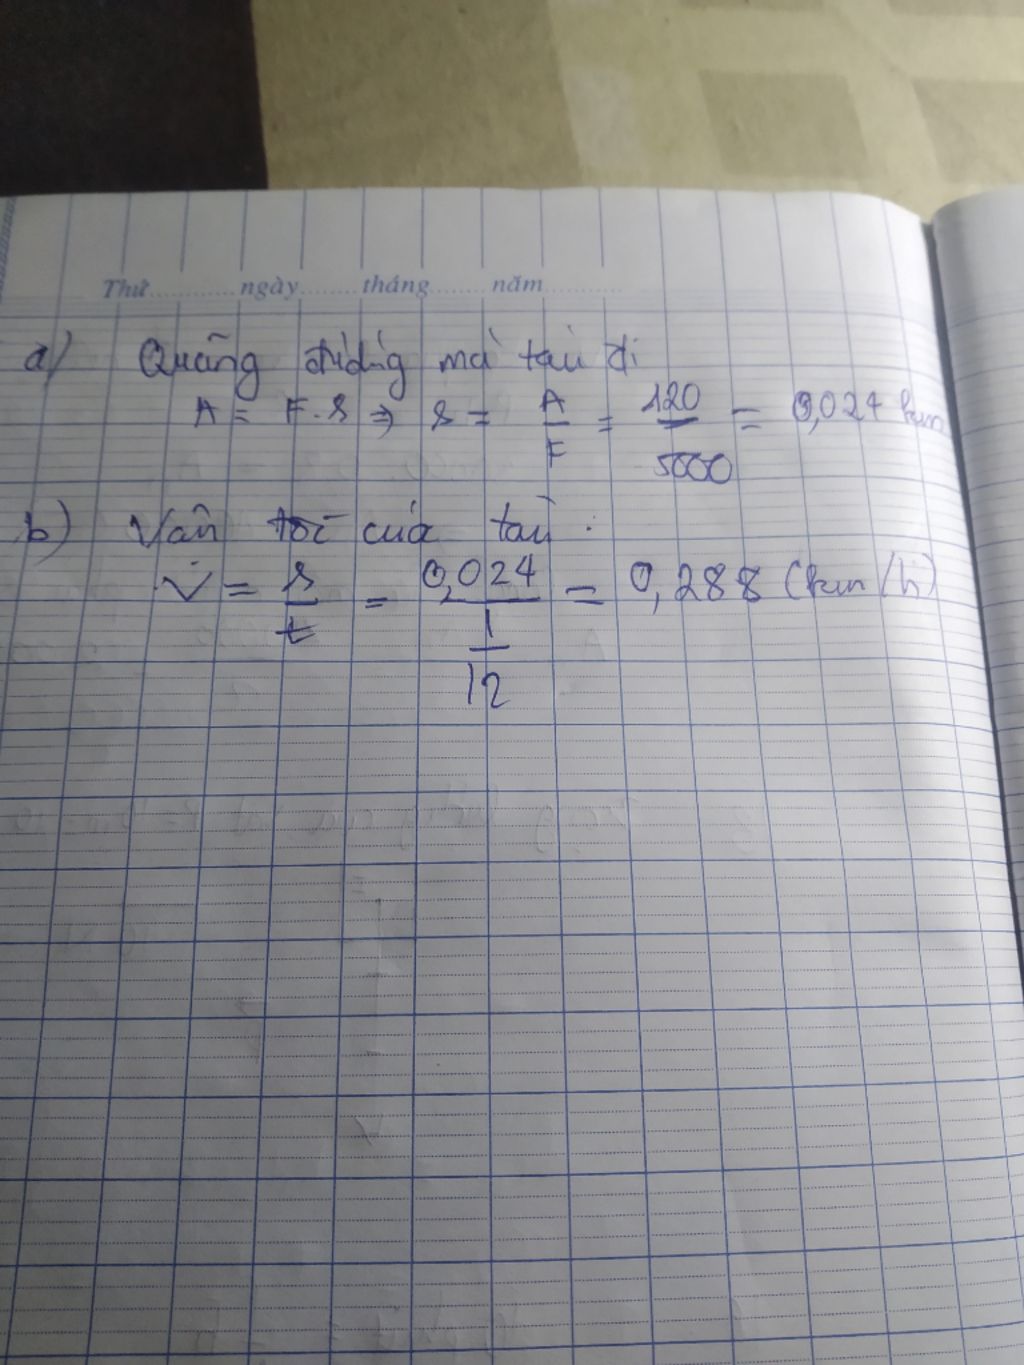 Thứ.............ngày........tháng........năm............
a) Quãng đường mà tàu đi
A = F.s ⇒ s = A/F = 120/5000 = 0,024 km
b) Vận tốc của tàu :
V = s/t = 0,024/(1/12) = 0,288 (km/h)